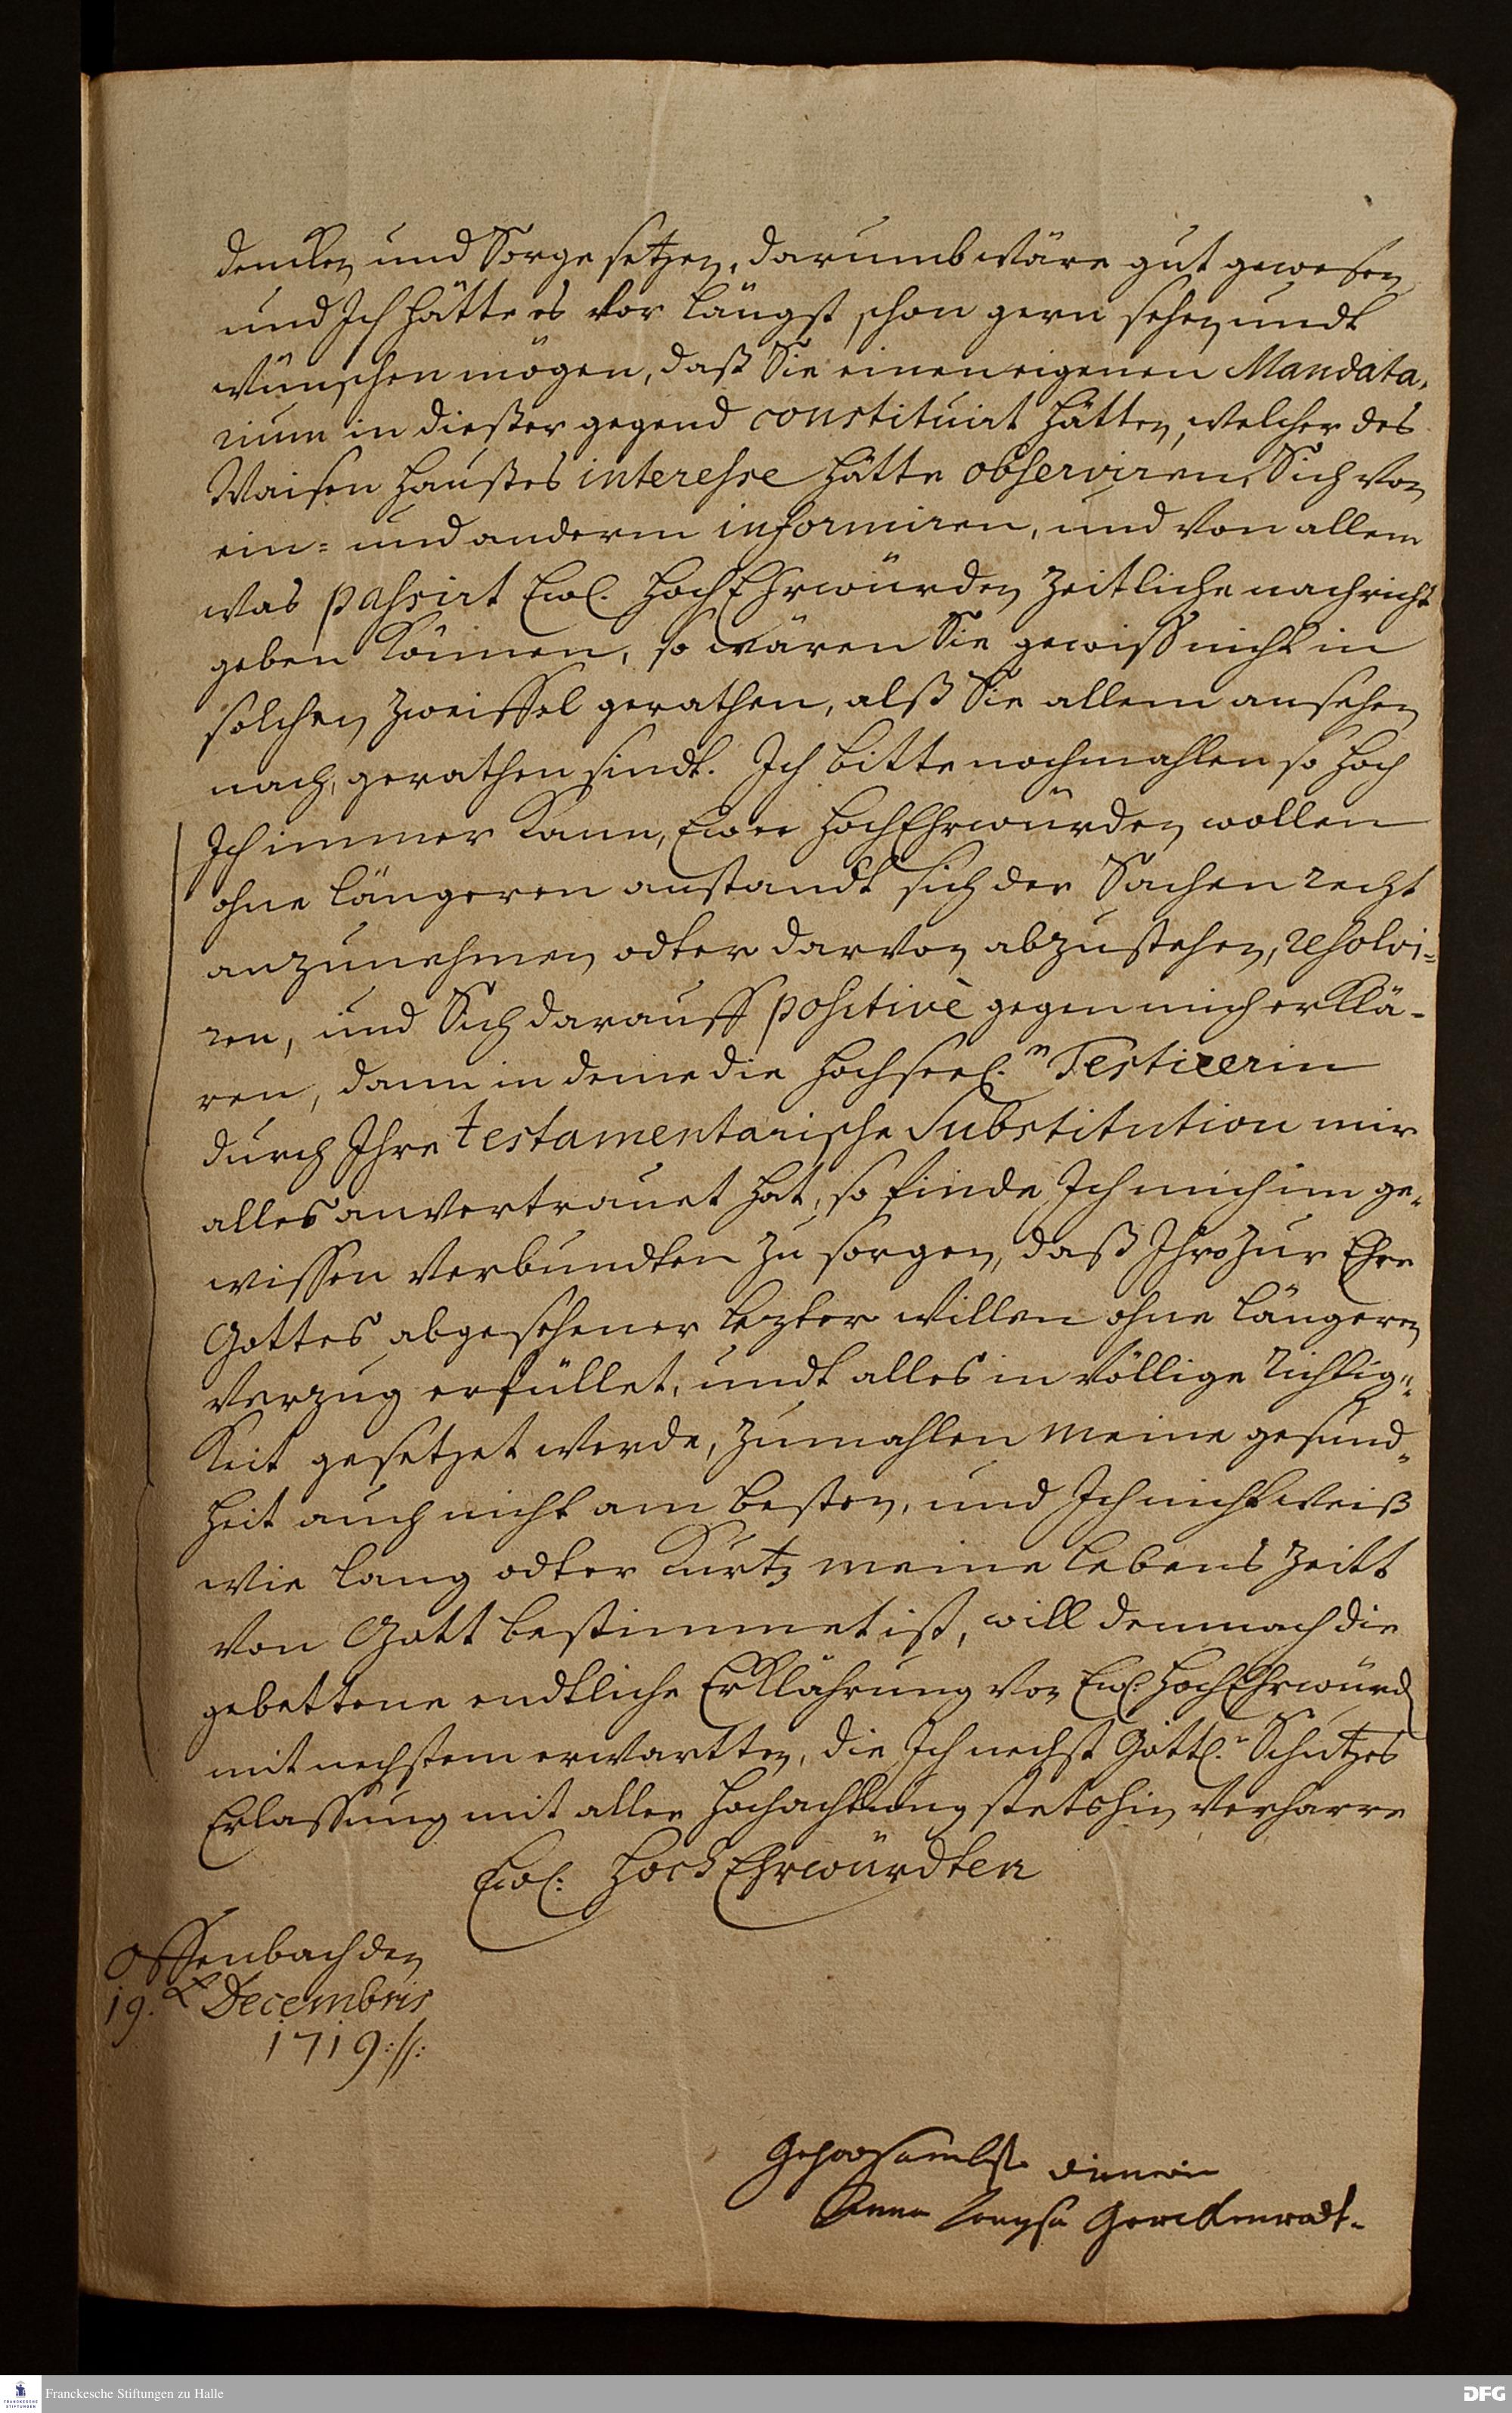 dencken und Sorge setzen, darumb wäre gut gewesen
und Ich hätte es vor längst schon gern sehen undt
wünschen mögen, daß Sie einen eigenen Mandata,
rium in dießer gegend constituirt hätten, welcher des
Waisen Haußes interesse hätte observiren, Sich von
ein= und anderm informiren, und von allem
was passirt Ewl. HochEhrwürden zeitliche nachricht
geben können, so wären Sie gewiß nicht in
solchen zweiffel gerathen, alß Sie allem ansehen
nach, gerathen sindt. Ich bitte nochmahlen so hoch
Ich immer kann, Ewer HochEhrwürden wollen
ohne längeren anstandt sich der Sachen recht
anzunehmen odter darvon abzustehen, resolvi=
ren, und Sich darauff positivè gegen mich erklä-
ren, dann in deme die Hochseel.n Testirerin
durch Ihre testamentarische Substitution mir
alles anvertrauet hat, so finde Ich mich im ge,
wissen verbundten zu sorgen, daß Ihro zur Ehre
Gottes abgesehener lezter Willen ohne längeren
Verzug erfüllet, undt alles in völlige richtig,,
keit gesetzet werde, zumahlen meine gesund,
heit auch nicht am besten, und Ich nicht weiß
wie lang odter kurtz meine lebens zeitt
von Gott bestimmet ist, will demnach die
gebettene endtliche Erklährung von Ewl. HochEhrwürd
mit nechstem erwartten, die Ich nechst Göttl.r Schutzes
Erlassung mit aller Hochachtung stetshin verharre
Ewl: HochEhrwürdten
Offenbach den
19. Decembris
1719://:
Gehorsambste dienerin
Anna Louysa
Franckesche Stiftungen zu Halle
DFG
FRANCKESCHE
STIFTUNGEN